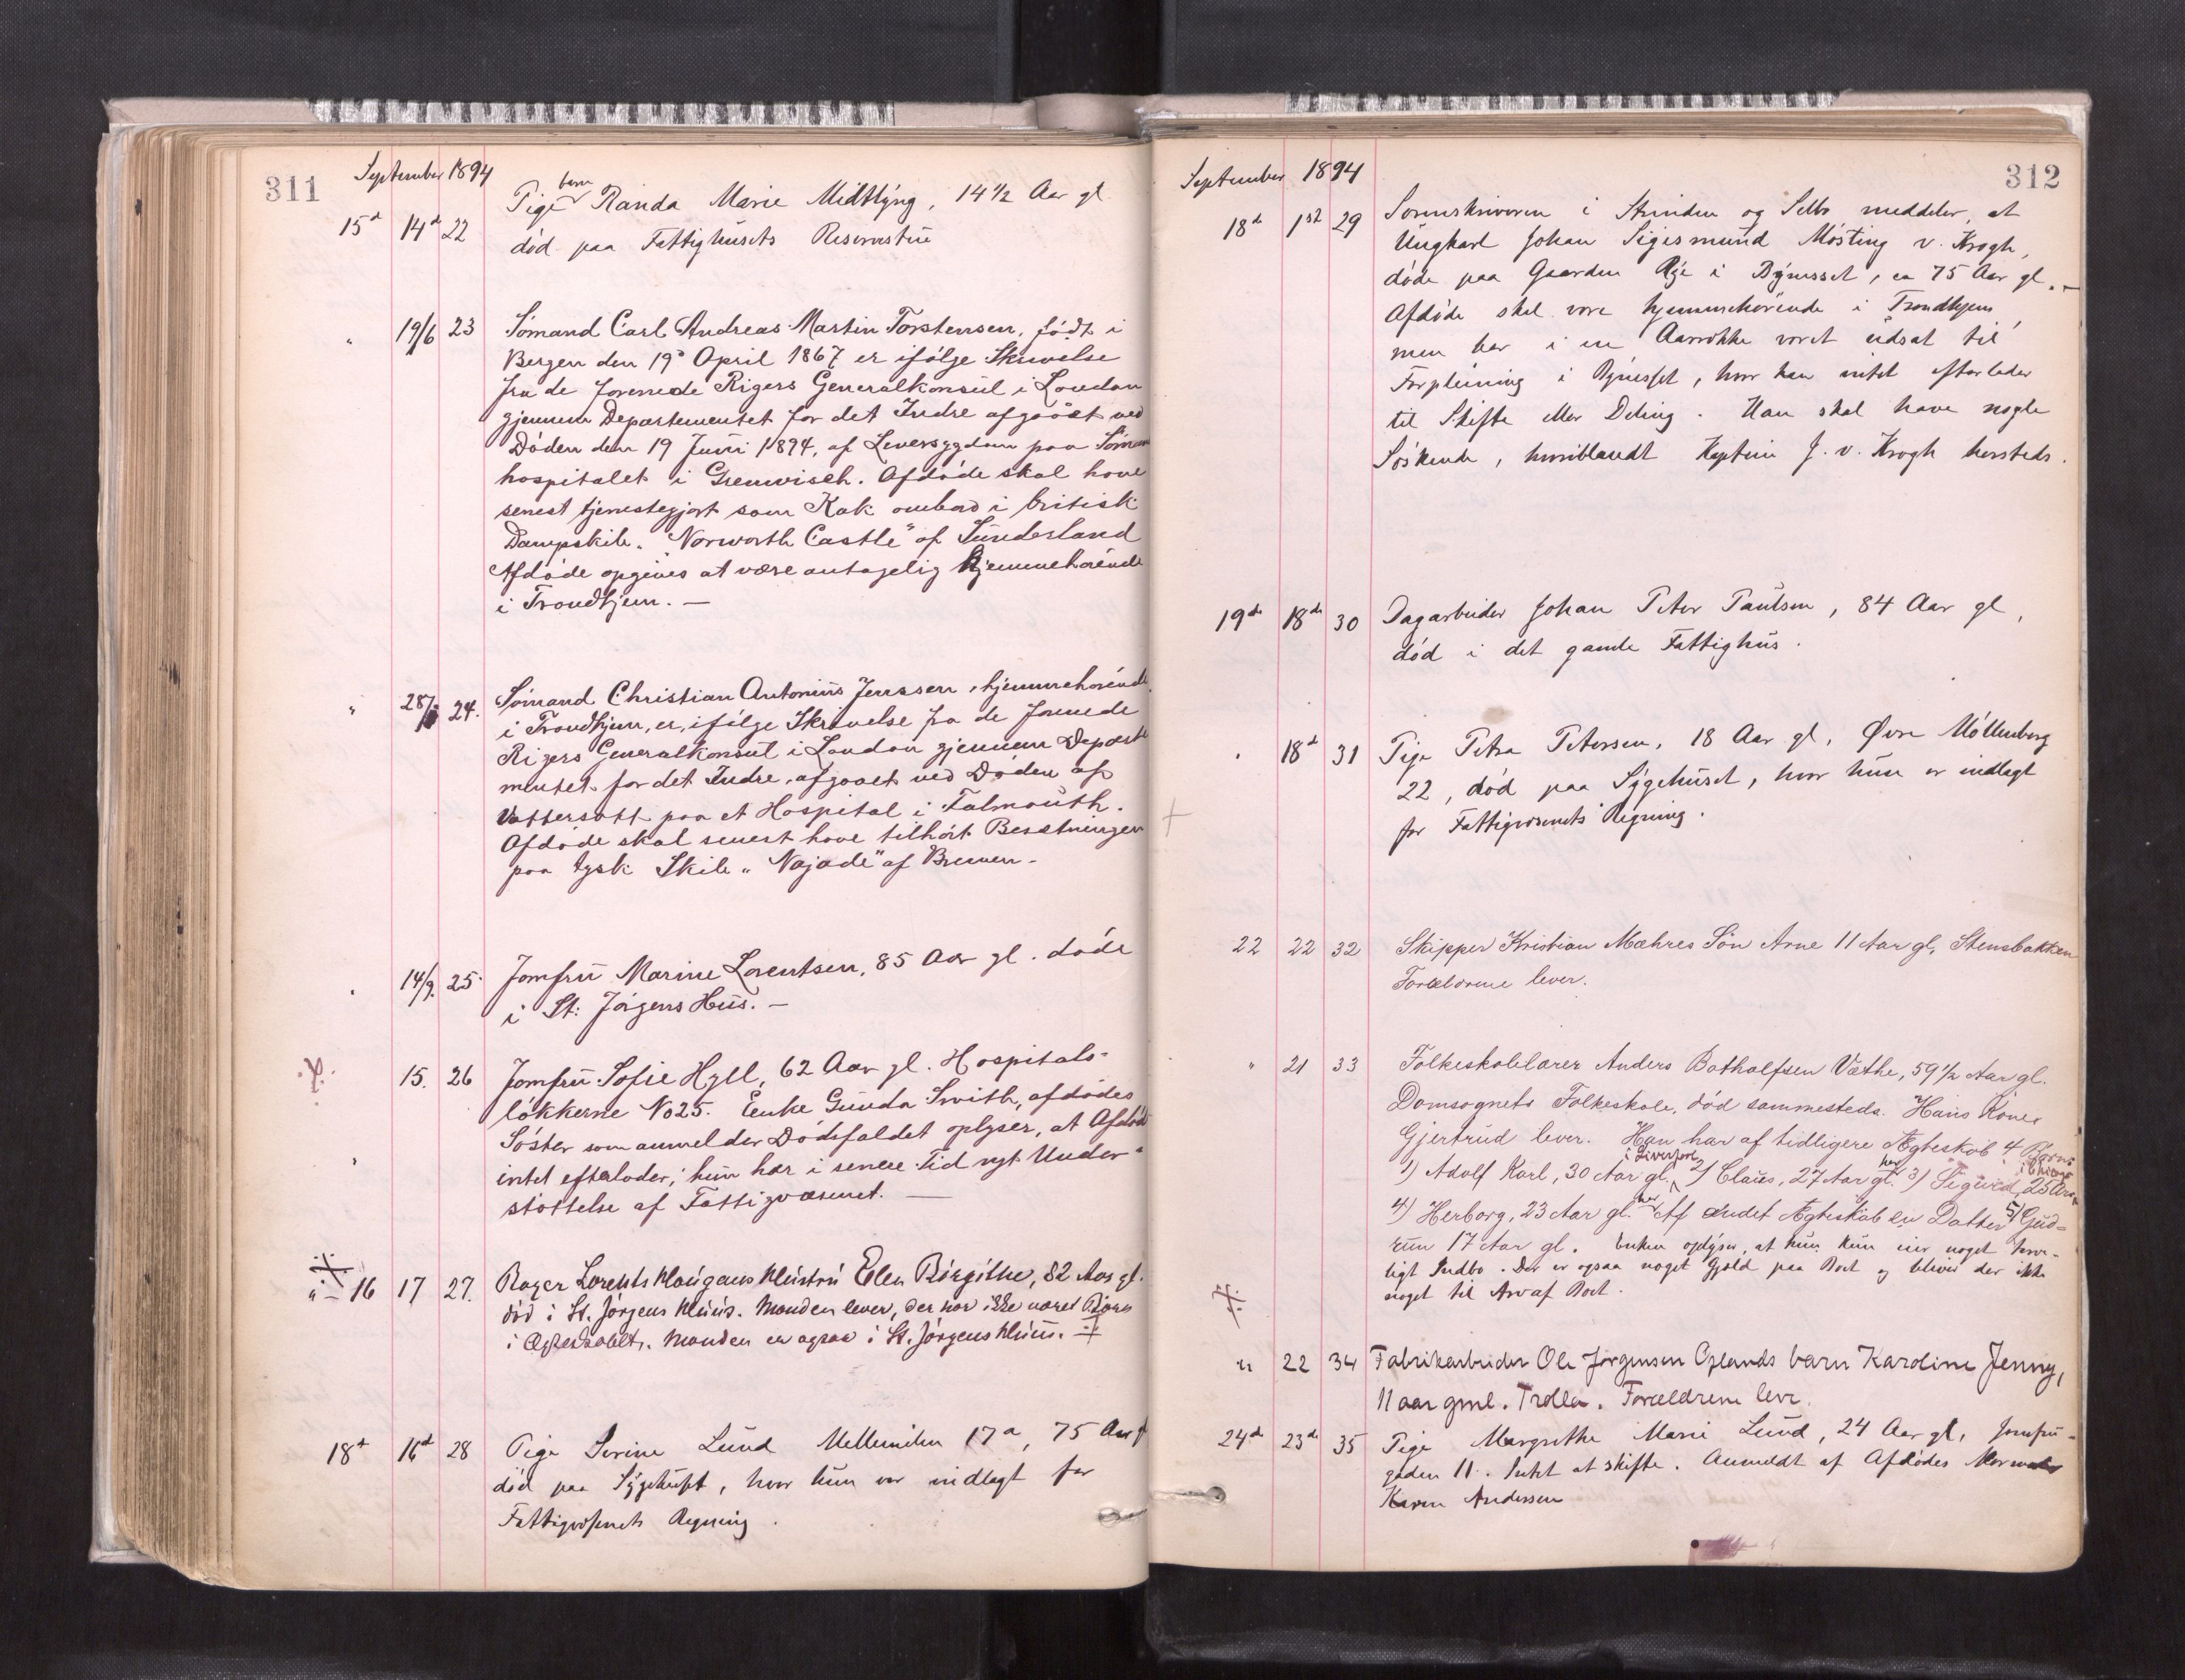 311
September 1894
15d 14d 22 Pigebarn Randa Marie Midtlyng, 14 1/2 Aar gl
død paa Fattighusets Reservestue
" 19/6 23 Sømand Carl Andreas Martin Torstensen, født i
Bergen den 19de April 1867 er ifølge Skrivelse
fra de forenede Rigers Generalkonsul i London
gjennem Departementet for det Indre afgaaet ved
Døden den 19 Juni 1894, af Leversygdom paa Sømands
hospitalet i Grenwisch. Afdøde skal have
senest tjenestegjort som Kok ombord i britisk
Dampskib "Norworth Castle" af Sunderland
Afdøde opgives at være antagelig hjemmehørende
i Trondhjem. —
" 24. Sømand Christian Antonius Jenssen, hjemmehørende
i Trondhjem, er, ifølge Skrivelse fra de forenede
Rigers Generalkonsul i London gjennem Departe
mentet for det Indre, afgaaet ved Døden af
Vattersott paa et Hospital i Falmouth.
Afdøde skal senest have tilhørt Besætningen
paa tysk Skib "Najade" af Bremen –
" 14/9. 25. Jomfru Marine Lorentsen, 85 Aar gl. døde
i St: Jørgens Hus. —
15. 26 Jomfru Sofie Hyll, 62 Aar gl. Hospitals-
løkkerne No 25. Enke Gunda Smith, afdødes
Søster som anmelder Dødsfaldet oplyser, at Afdøde
intet efterlader; hun har i senere Tid nyt Under-
støttelse af Fattigvæsenet. —
" – 16 17 27. Bager Lorents Haugans Hustru Elen Birgithe, 82 Aar gl.
død i St. Jørgens Huus. Manden lever, der har ikke været Børn
i Ægteskabet. Manden er ogsaa i St. Jørgens Huus.
18d 16d 28 Pige Serine Lund Mellemilen 17a, 75 Aar gl
død paa Sygehuset, hvor hun var indlagt for
Fattigvæsenets Regning.
312
September 1894
18d 1st 29 Sorenskriveren i Strinden og Selbo meddeler, at
Ungkarl Johan Sigismund Møsting v. Krogh,
døde paa Gaarden Rye i Bynesset, ca 75 Aar gl. –
Afdøde skal være hjemmehørende i Trondhjem,
men har i en Aarrække været udsat til
Forpleining i Bynesset, hvor han intet efterlader
til Skifte eller Deling. Han skal have nogle
Søskende, hvoriblandt Kaptein J. v. Krogh hersteds.
19de 18de 30 Dagarbeider Johan Peter Paulsen, 84 Aar gl,
død i det gamle Fattighus.
" 18d 31 Pige Petra Petersen, 18 Aar gl, Øvre Møllenberg
22, død paa Sygehuset, hvor hun er indlagt
for Fattigvæsenets Regning.
22 22 32 Skipper Kristian Mæhres Søn Arne 11 Aar gl, Stensbakken
Forældrene lever.
" 21 33 Folkeskolelærer Anders Botholfsen Væthe, 59 1/2 Aar gl.
Domsognets Folkeskole, død sammesteds. Hans Kone
Gjertrud lever. Han har af tidligere Ægteskab 4 Børn:
1) Adolf Karl, 30 Aar gl. i Liverpool, 2) Claus, 27 Aar gl. her 3) Sigurd, 25 Aar i Chicago
4) Herborg, 23 Aar gl. her Af andet Ægteskab en Datter 5) Gud-
run 17 Aar gl. Enken oplyser, at hun kun eier noget tarve-
ligt Indbo. Der er ogsaa noget Gjæld paa Boet og bliver der ikke
noget til Arv af Boet.
" 22 34 Fabrikarbeider Ole Jørgensen Oplands barn Karoline Jenny,
11 aar gml. Trolla. Forældrene leve.
24de 23de 35 Pige Margrethe Marie Lund, 24 Aar gl, Jomfru-
gaden 11. Intet at skifte. Anmeldt af Afdødes Mor
Karen Andersen